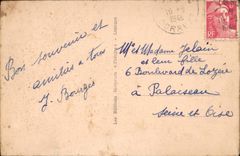 Bon souvenir et
amitiés à tous
J. Bouges
Mr et Madame Jelain
et leur fille
6 Boulevard de Lozère
à Palaiseau
Seine et Oise